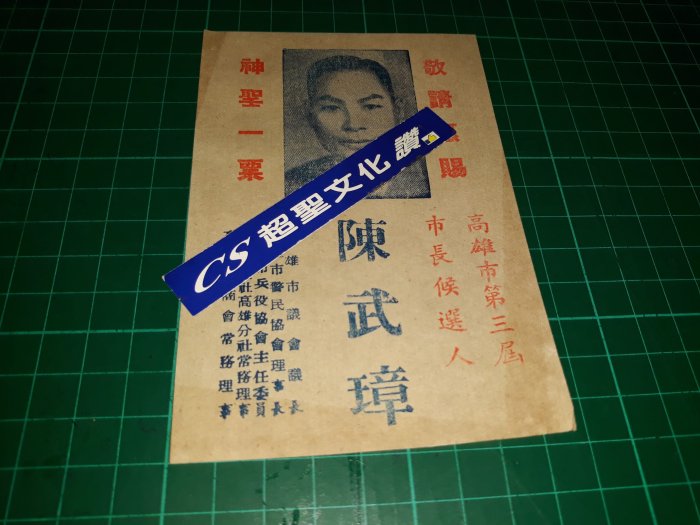 敬請賜
高雄市第三屆
市長候選人
陳武璋
雄市議會議長
市警民協會理事長
兵役協會主任委員
社高雄分社常務理事
商會常務理事
神聖一票
CS 超聖文化 讚